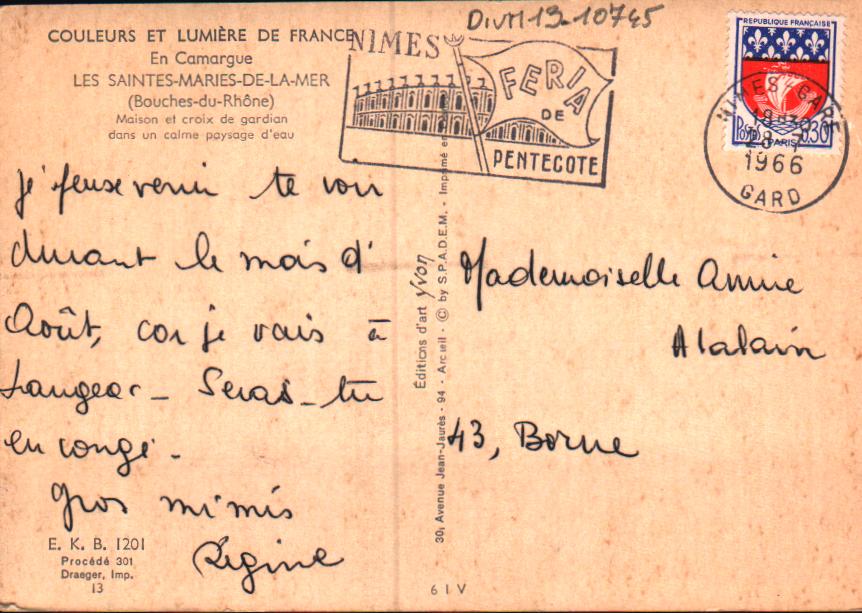 COULEURS ET LUMIÈRE DE FRANCE
En Camargue
LES SAINTES-MARIES-DE-LA-MER
(Bouches-du-Rhône)
Maison et croix de gardian
dans un calme paysage d'eau
Je pense venir te voir
durant le mois d'
Août, car je vais à
Langeac - Seras-tu
en congé.
Gros mimis
Régine
E. K. B. 1201
Procédé 301
Draeger, Imp.
13
Editions d'art Yvon
30, Avenue Jean-Jaurès - 94 - Arcueil - © by S.P.A.D.E.M. - Imprimé en
6 I V
DIVM 13-10745
NIMES
FERIA
DE
PENTECOTE
REPUBLIQUE FRANÇAISE
Postes PARIS 0,30F
NIMES-GARE
28-7
1966
GARD
Mademoiselle Annie
Alalain
43, Borne